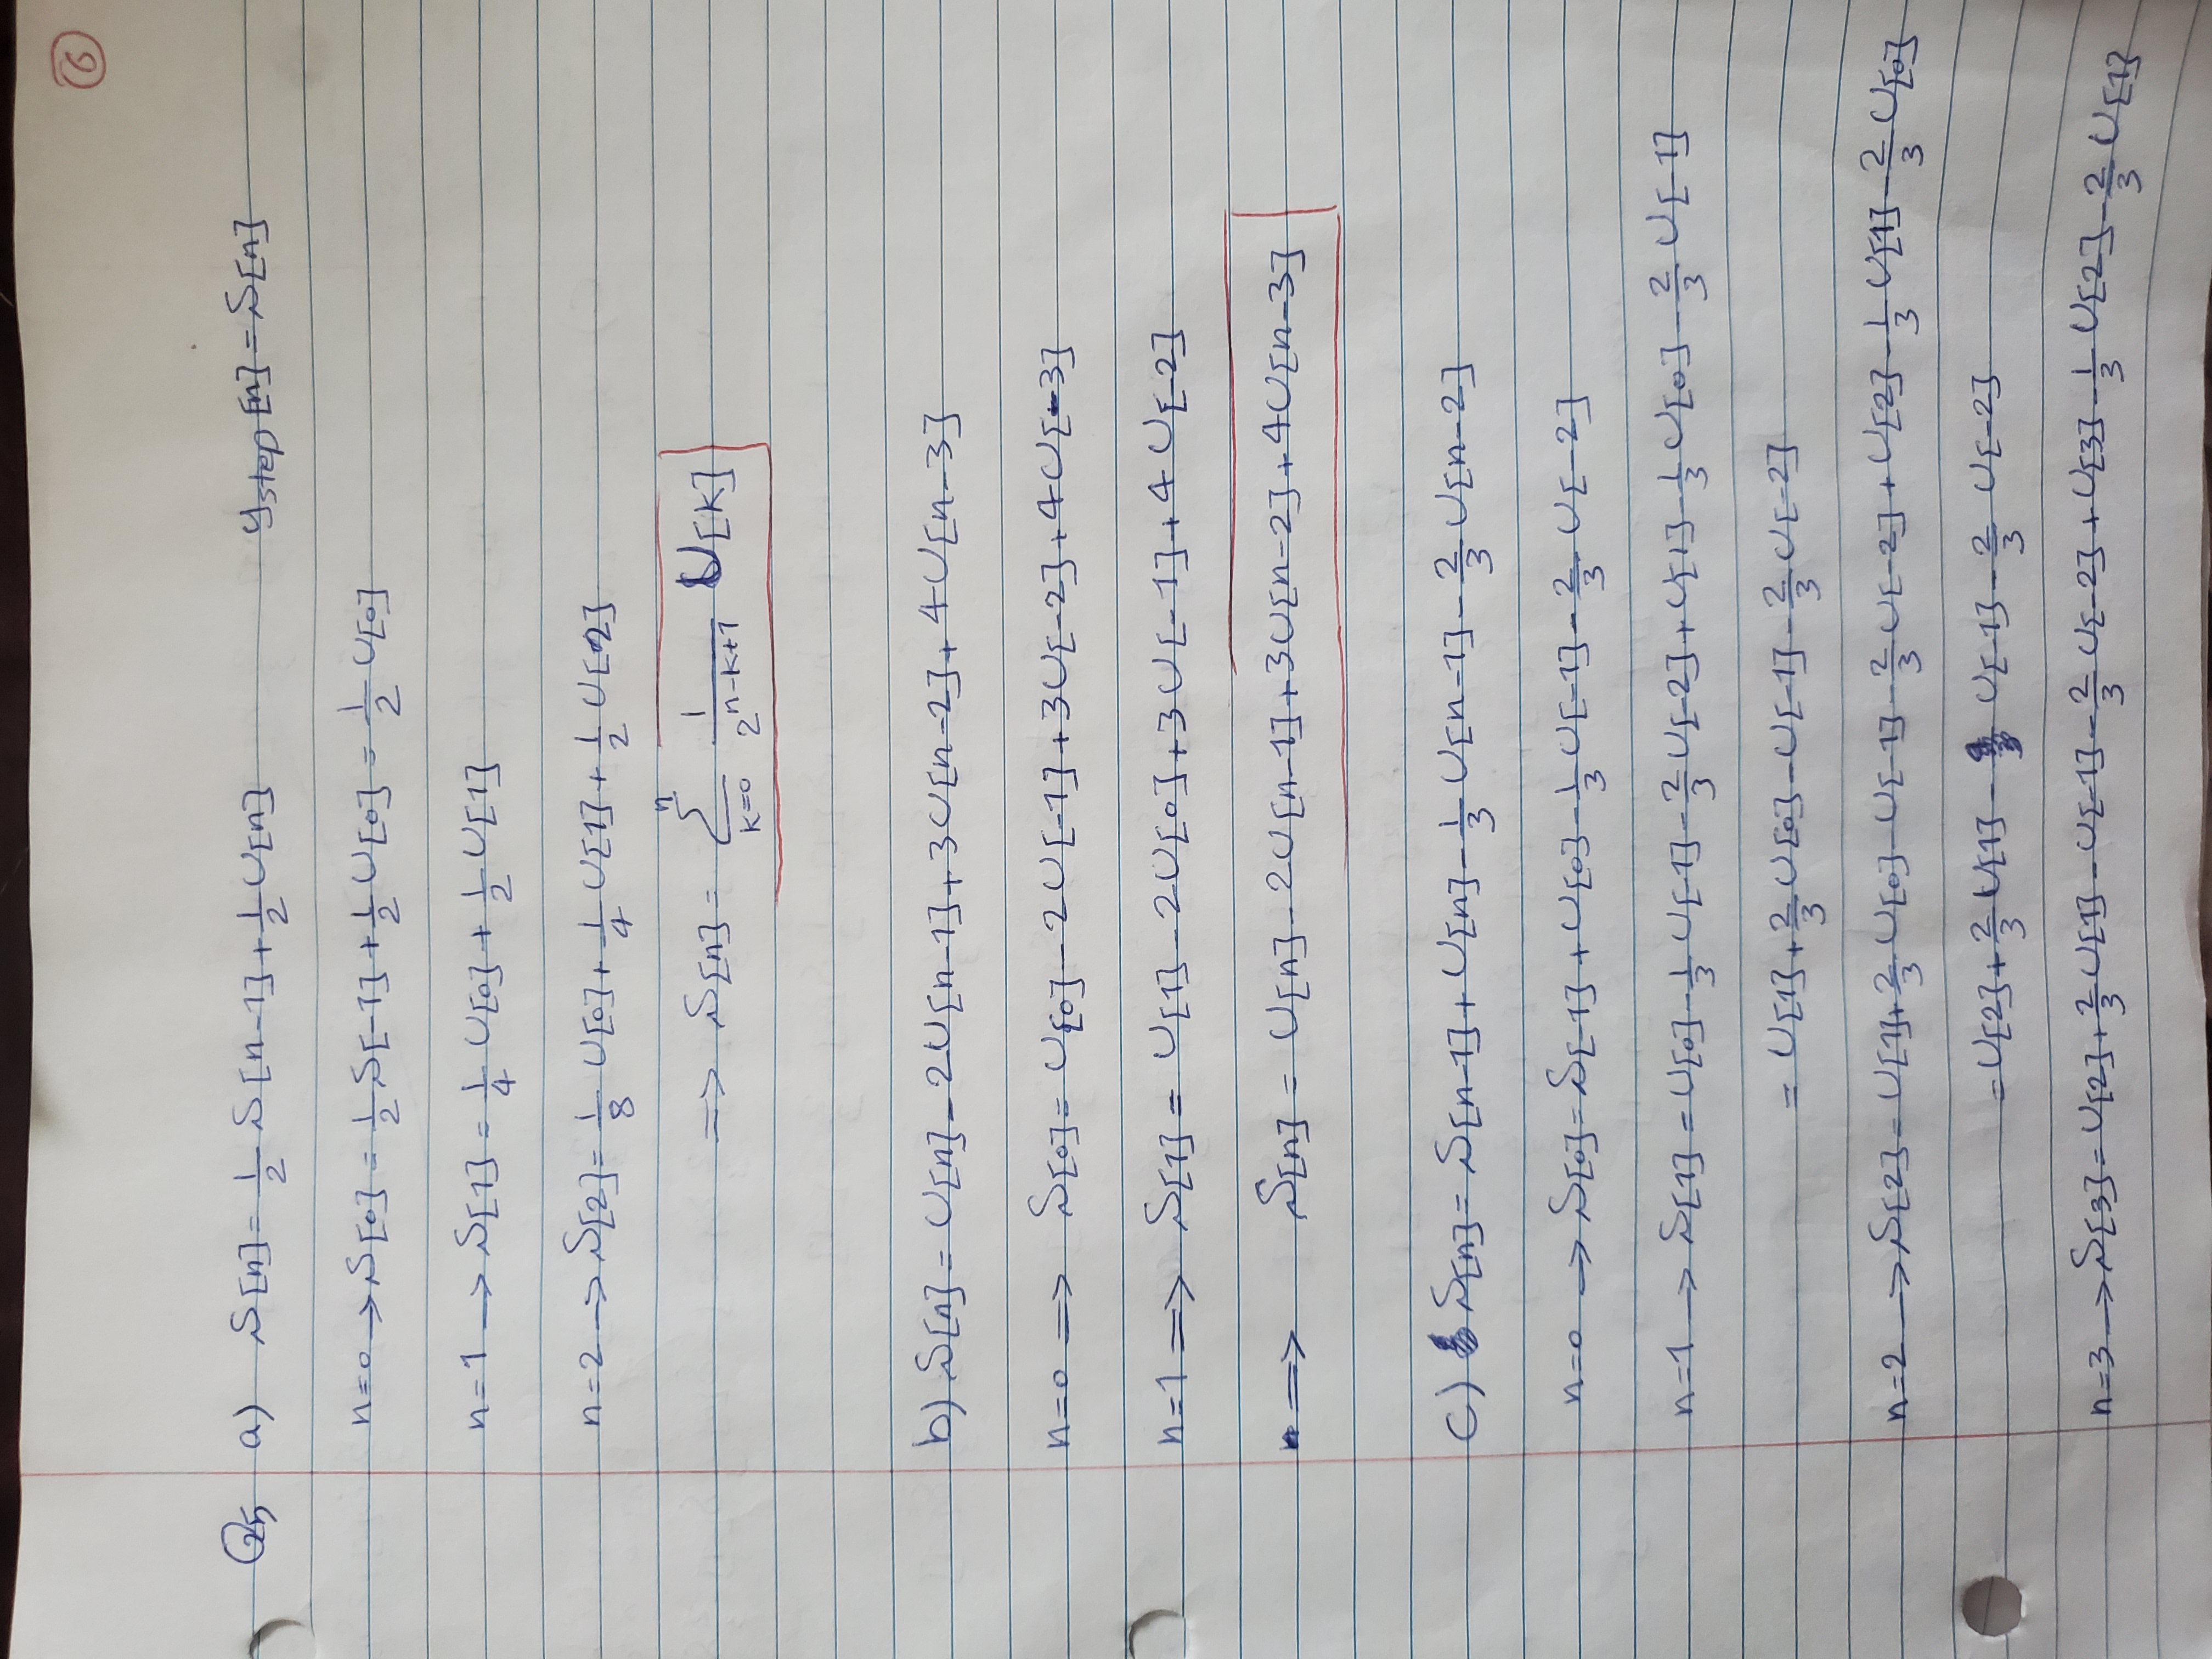 6
Q5 a) s[n] = 1/2 s[n-1] + 1/2 u[n] ystep[n] = s[n]
n=0 → s[0] = 1/2 s[-1] + 1/2 u[0] = 1/2 u[0]
n=1 → s[1] = 1/4 u[0] + 1/2 u[1]
n=2 → s[2] = 1/8 u[0] + 1/4 u[1] + 1/2 u[2]
⇒ s[n] = Σ_{k=0}^{n} 1/2^{n-k+1} u[k]
b) s[n] = u[n] - 2u[n-1] + 3u[n-2] + 4u[n-3]
n=0 ⇒ s[0] = u[0] - 2u[-1] + 3u[-2] + 4u[-3]
n=1 ⇒ s[1] = u[1] - 2u[0] + 3u[-1] + 4u[-2]
n ⇒ s[n] = u[n] - 2u[n-1] + 3u[n-2] + 4u[n-3]
c) s[n] = s[n-1] + u[n] - 1/3 u[n-1] - 2/3 u[n-2]
n=0 → s[0] = s[-1] + u[0] - 1/3 u[-1] - 2/3 u[-2]
n=1 → s[1] = u[0] - 1/3 u[-1] - 2/3 u[-2] + u[1] - 1/3 u[0] - 2/3 u[-1]
= u[1] + 2/3 u[0] - u[-1] - 2/3 u[-2]
n=2 → s[2] = u[1] + 2/3 u[0] - u[-1] - 2/3 u[-2] + u[2] - 1/3 u[1] - 2/3 u[0]
= u[2] + 2/3 u[1] - u[-1] - 2/3 u[-2]
n=3 → s[3] = u[2] + 2/3 u[1] - u[-1] - 2/3 u[-2] + u[3] - 1/3 u[2] - 2/3 u[1]